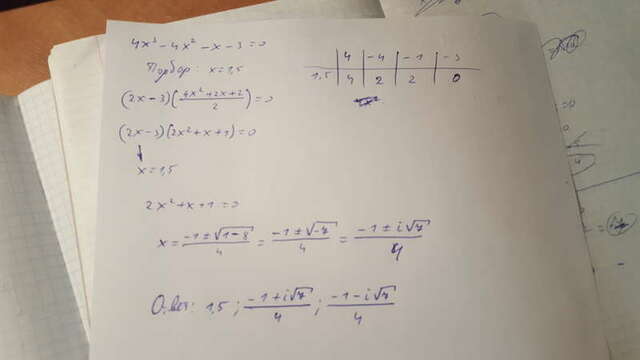 4x³ - 4x² - x - 3 = 0
Подбор: x = 1,5
4 | -4 | -1 | -3
1,5 | 4 | 2 | 2 | 0
(2x - 3)(4x² + 2x + 2 / 2) = 0
(2x - 3)(2x² + x + 1) = 0
↓
x = 1,5
2x² + x + 1 = 0
x = -1 ± √1-8 / 4 = -1 ± √-7 / 4 = -1 ± i√7 / 4
Ответ: 1,5 ; -1 + i√7 / 4 ; -1 - i√7 / 4